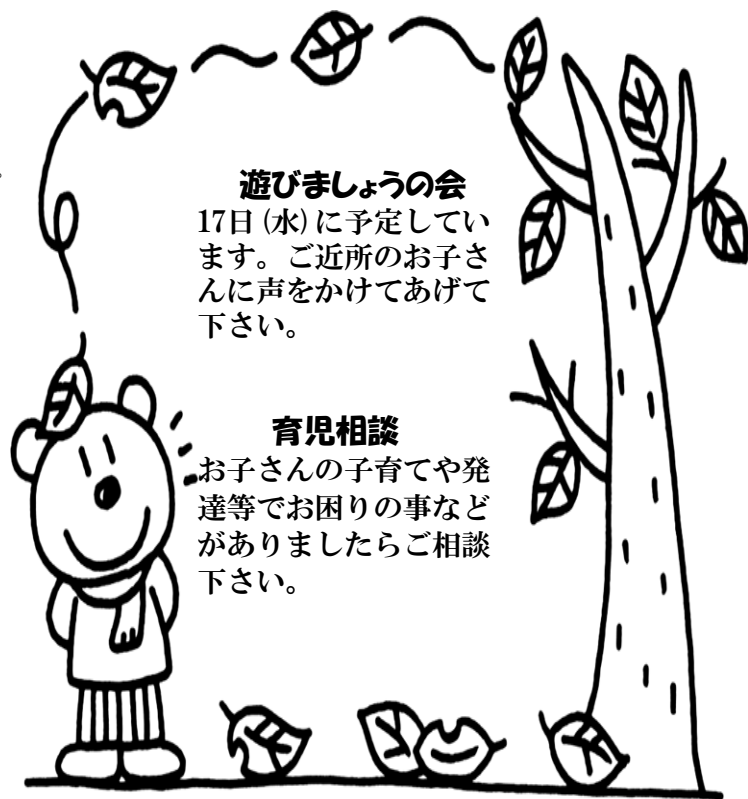 遊びましょうの会
17日(水)に予定してい
ます。ご近所のお子さ
んに声をかけてあげて
下さい。
育児相談
お子さんの子育てや発
達等でお困りの事など
がありましたらご相談
下さい。